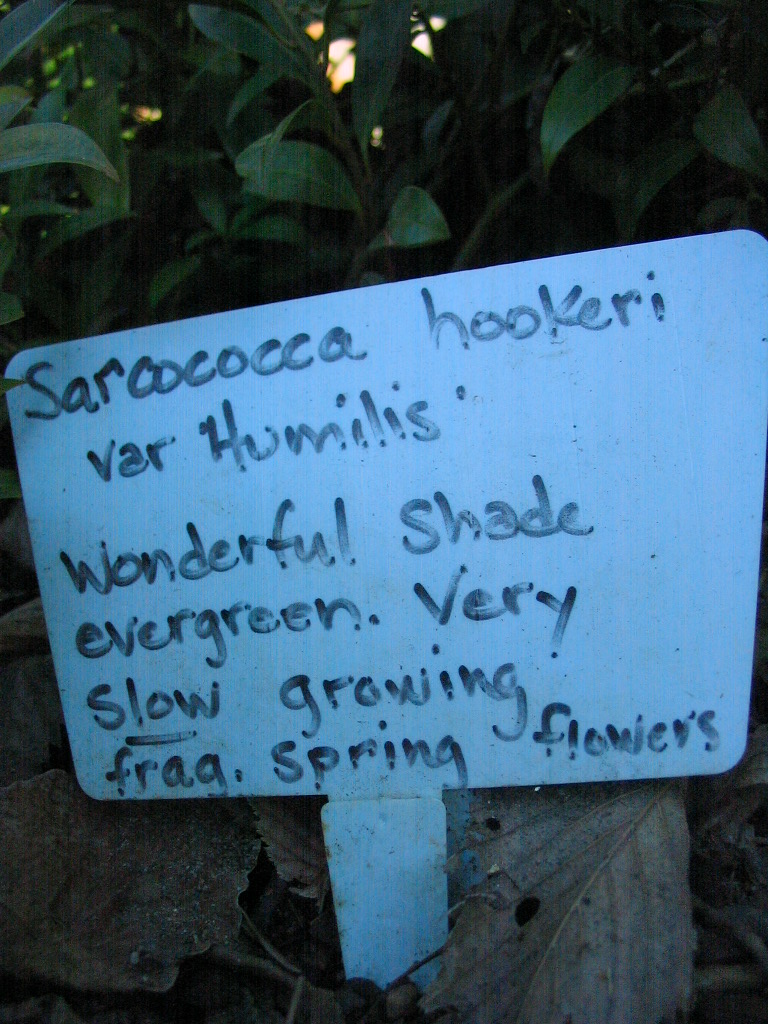 Sarcococca hookeri
var 'Humilis'
Wonderful Shade
evergreen. Very
Slow growing
frag. spring flowers